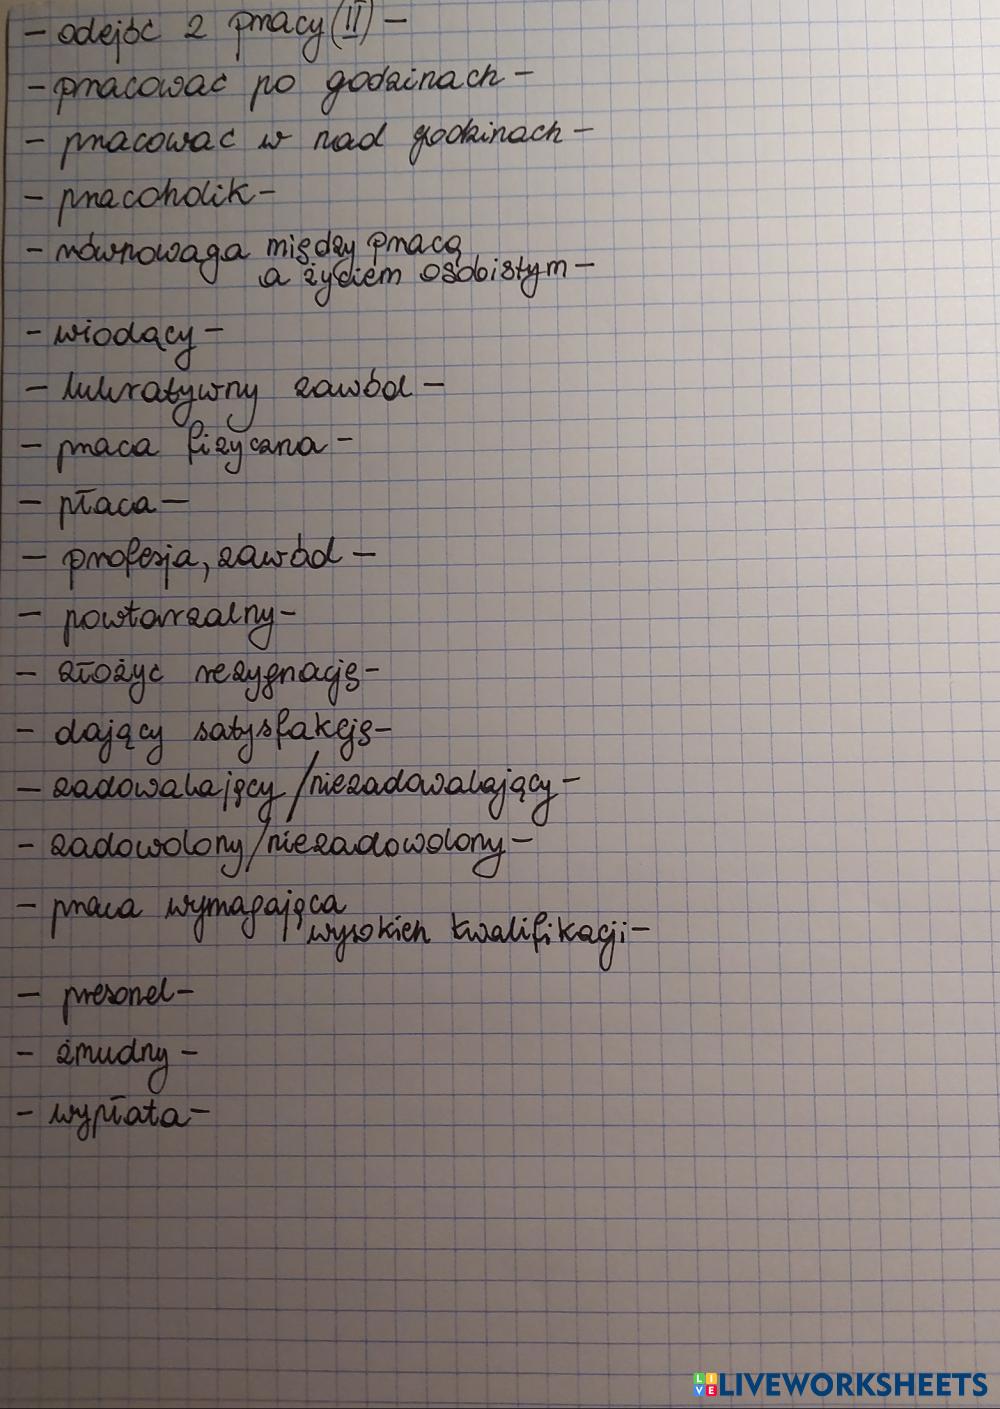 - odejść z pracy (II) -
- pracować po godzinach -
- pracować w nad godzinach -
- pracoholik -
- równowaga między pracą
a życiem osobistym -
- wiodący -
- lukratywny zawód -
- praca fizyczna -
- płaca -
- profesja, zawód -
- powtarzalny -
- złożyć rezygnację -
- dający satysfakcję -
- zadowalający / niezadowalający -
- zadowolony / niezadowolony -
- praca wymagająca
wysokich kwalifikacji -
- presonel -
- żmudny -
- wypłata -
LIVEWORKSHEETS